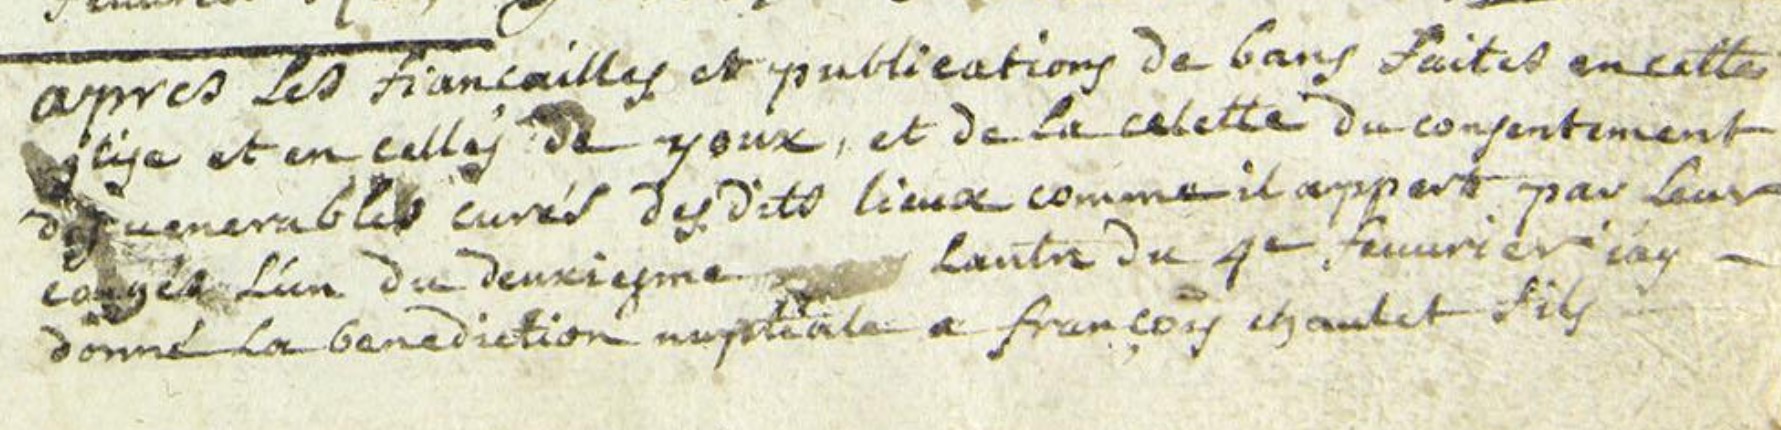 apres Les fiancailles et publications de bans faites en cette
glise et en celles de youx, et de La celette du consentement
des venerables curés des dits lieux comme il appert par Leur
congés L'un du deuxiesme Lautre du 4e feuurier iay
donné La benediction nuptiale a françois chaulet fils